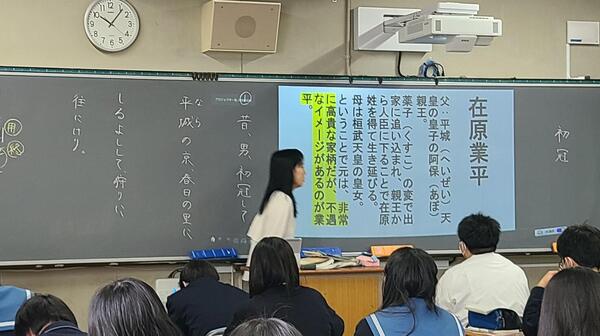 初冠
在原業平
父：平城（へいぜい）天
皇の皇子の阿保（あぼ）
親王。
薬子（くすこ）の変で出
家に追い込まれ、親王か
ら人臣に下ることで在原
姓を得て生き延びる。
母は桓武天皇の皇女。
ということで元は、非常
に高貴な家柄だが、不遇
なイメージがあるのが業
平。
① 昔、男、初冠して
なら
平城の京、春日の里に
しるよしして、狩りに
往にけり。
用
終